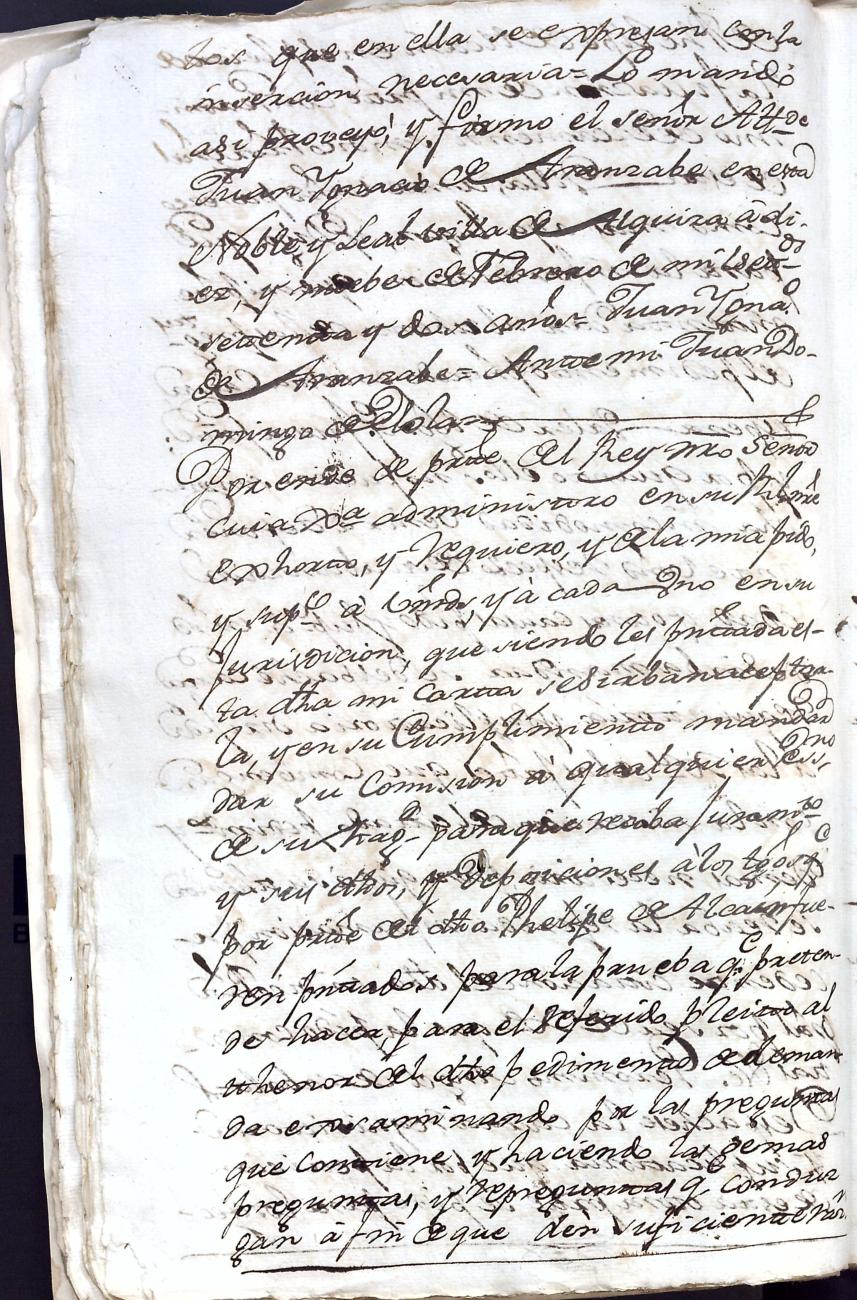 tos que en ella se expresan con la
insercion necesaria = Lo mandò
asi proveyó, y firmo el señor Alld.e
Juan Ygnacio de Aranzabe en esta
Noble, y Leal villa de Alquiza à di-
ez, y nuebe de Febrero de mil setos
setenta y dos años = Juan Ygna.o
de Aranzabe = Ante mi Juan Do-
mingo de Olola
Por ende de pñte del Rey nro Señor
cuia Rª administro en su Rl nre
exhorto, y requiero, y de la mia pido,
y sup.co à Vmds, y à cada Uno en su
Jurisdicion, que siendo les pñtada es-
ta dha mi carta se sirban acepta-
la, y en su Cumplimiento mandar
dar su Comision à qualquier Essno
de su para que reciba Juramto
y sus dhos, y Deposiciones à los tgos q.e
por pñte del dho Phelipe de Alcain fue-
ren pñtados para la prueba q.e preten-
de hacer, para el referido pleito al
thenor del dho pedimento de deman-
da examinando por las preguntas
que contiene, y haciendo las demas
preguntas, y repreguntas q.e conduz
gan à fin de que den suficiente